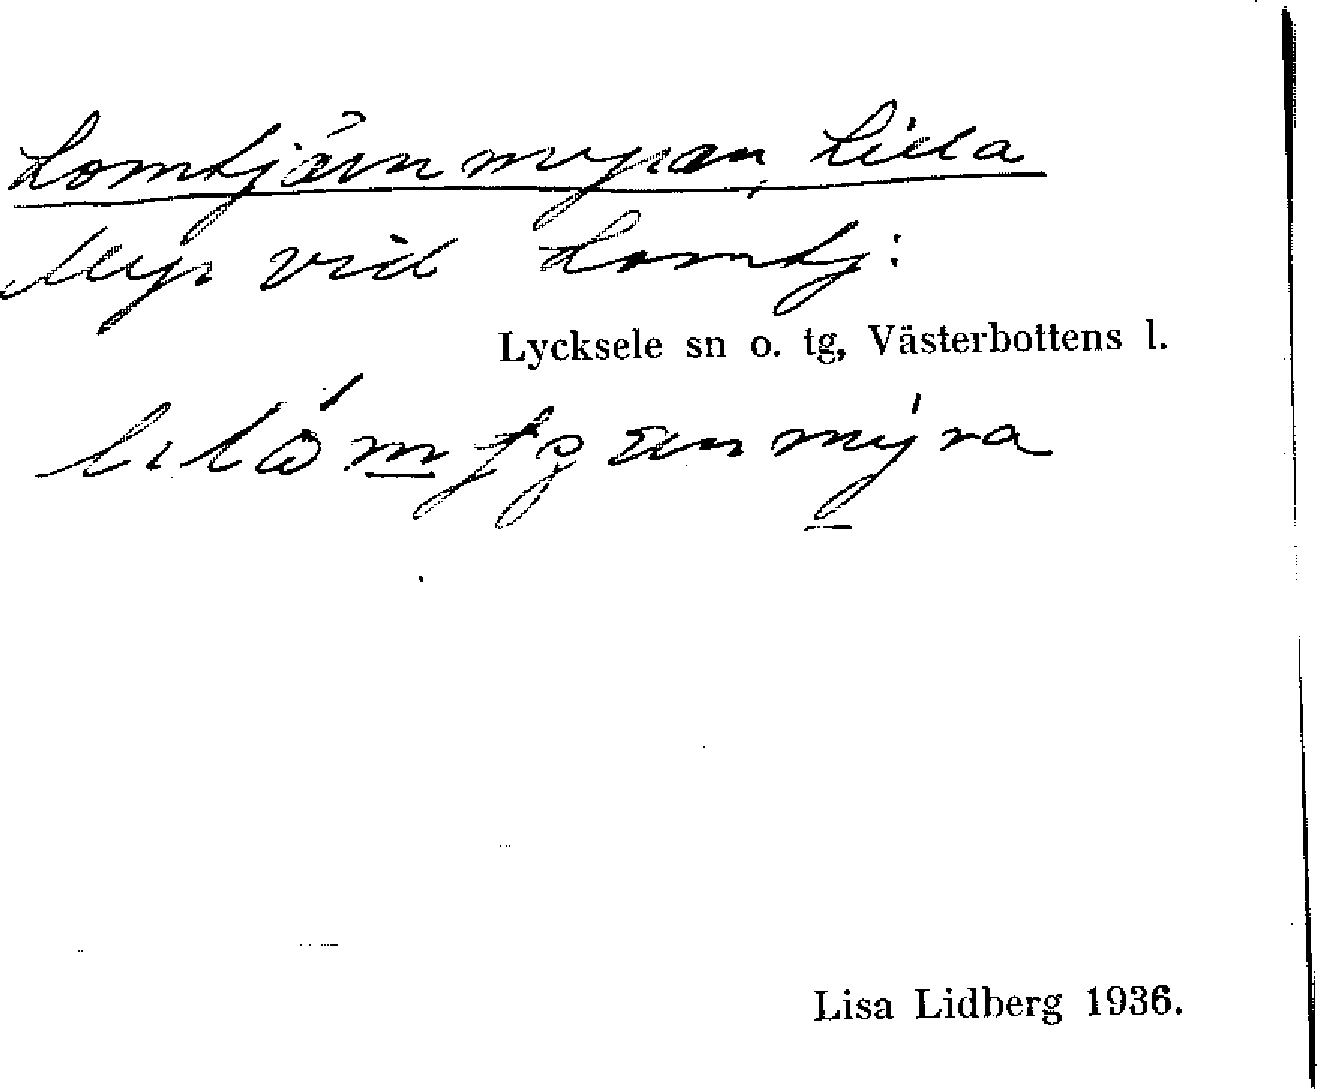 Lomtjärnmyran, Lilla
Myr vid Lomtj:
Lycksele sn o. tg, Västerbottens l.
Lisa Lidberg 1936.